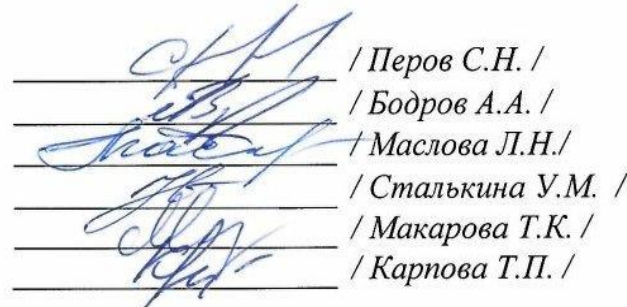 / Перов С.Н. /
/ Бодров А.А. /
/ Маслова Л.Н./
/ Сталькина У.М. /
/ Макарова Т.К. /
/ Карпова Т.П. /